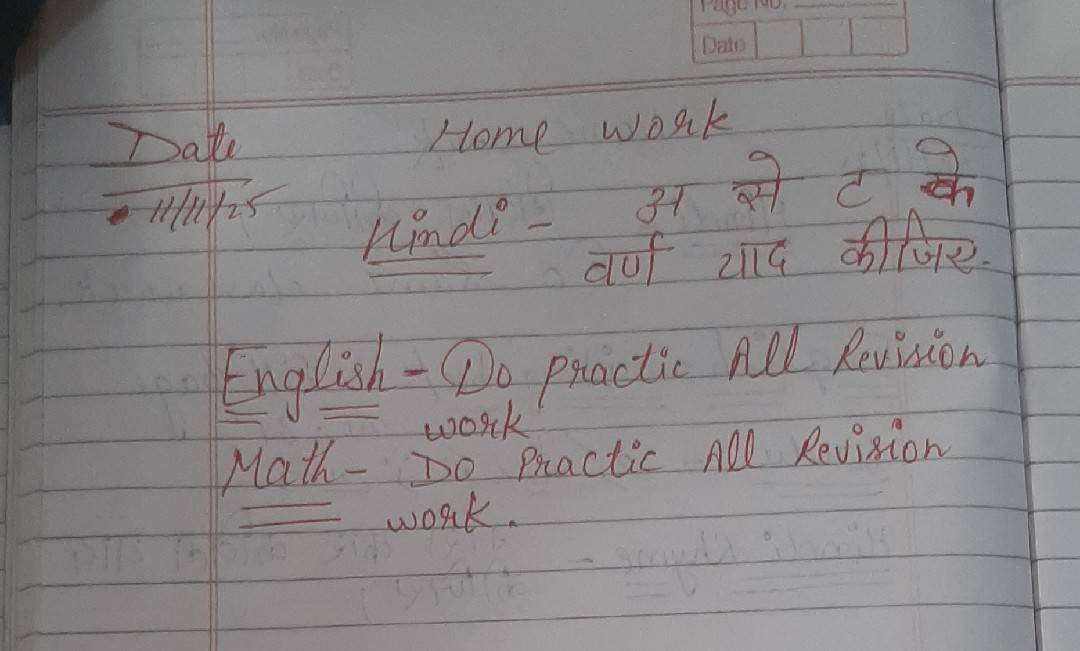 Page No.
Date
Date Home work
11/11/25
Hindi - अ से ट के
वर्ण याद कीजिए.
English - Do practic All Revision
work
Math - Do Practic All Revision
work.